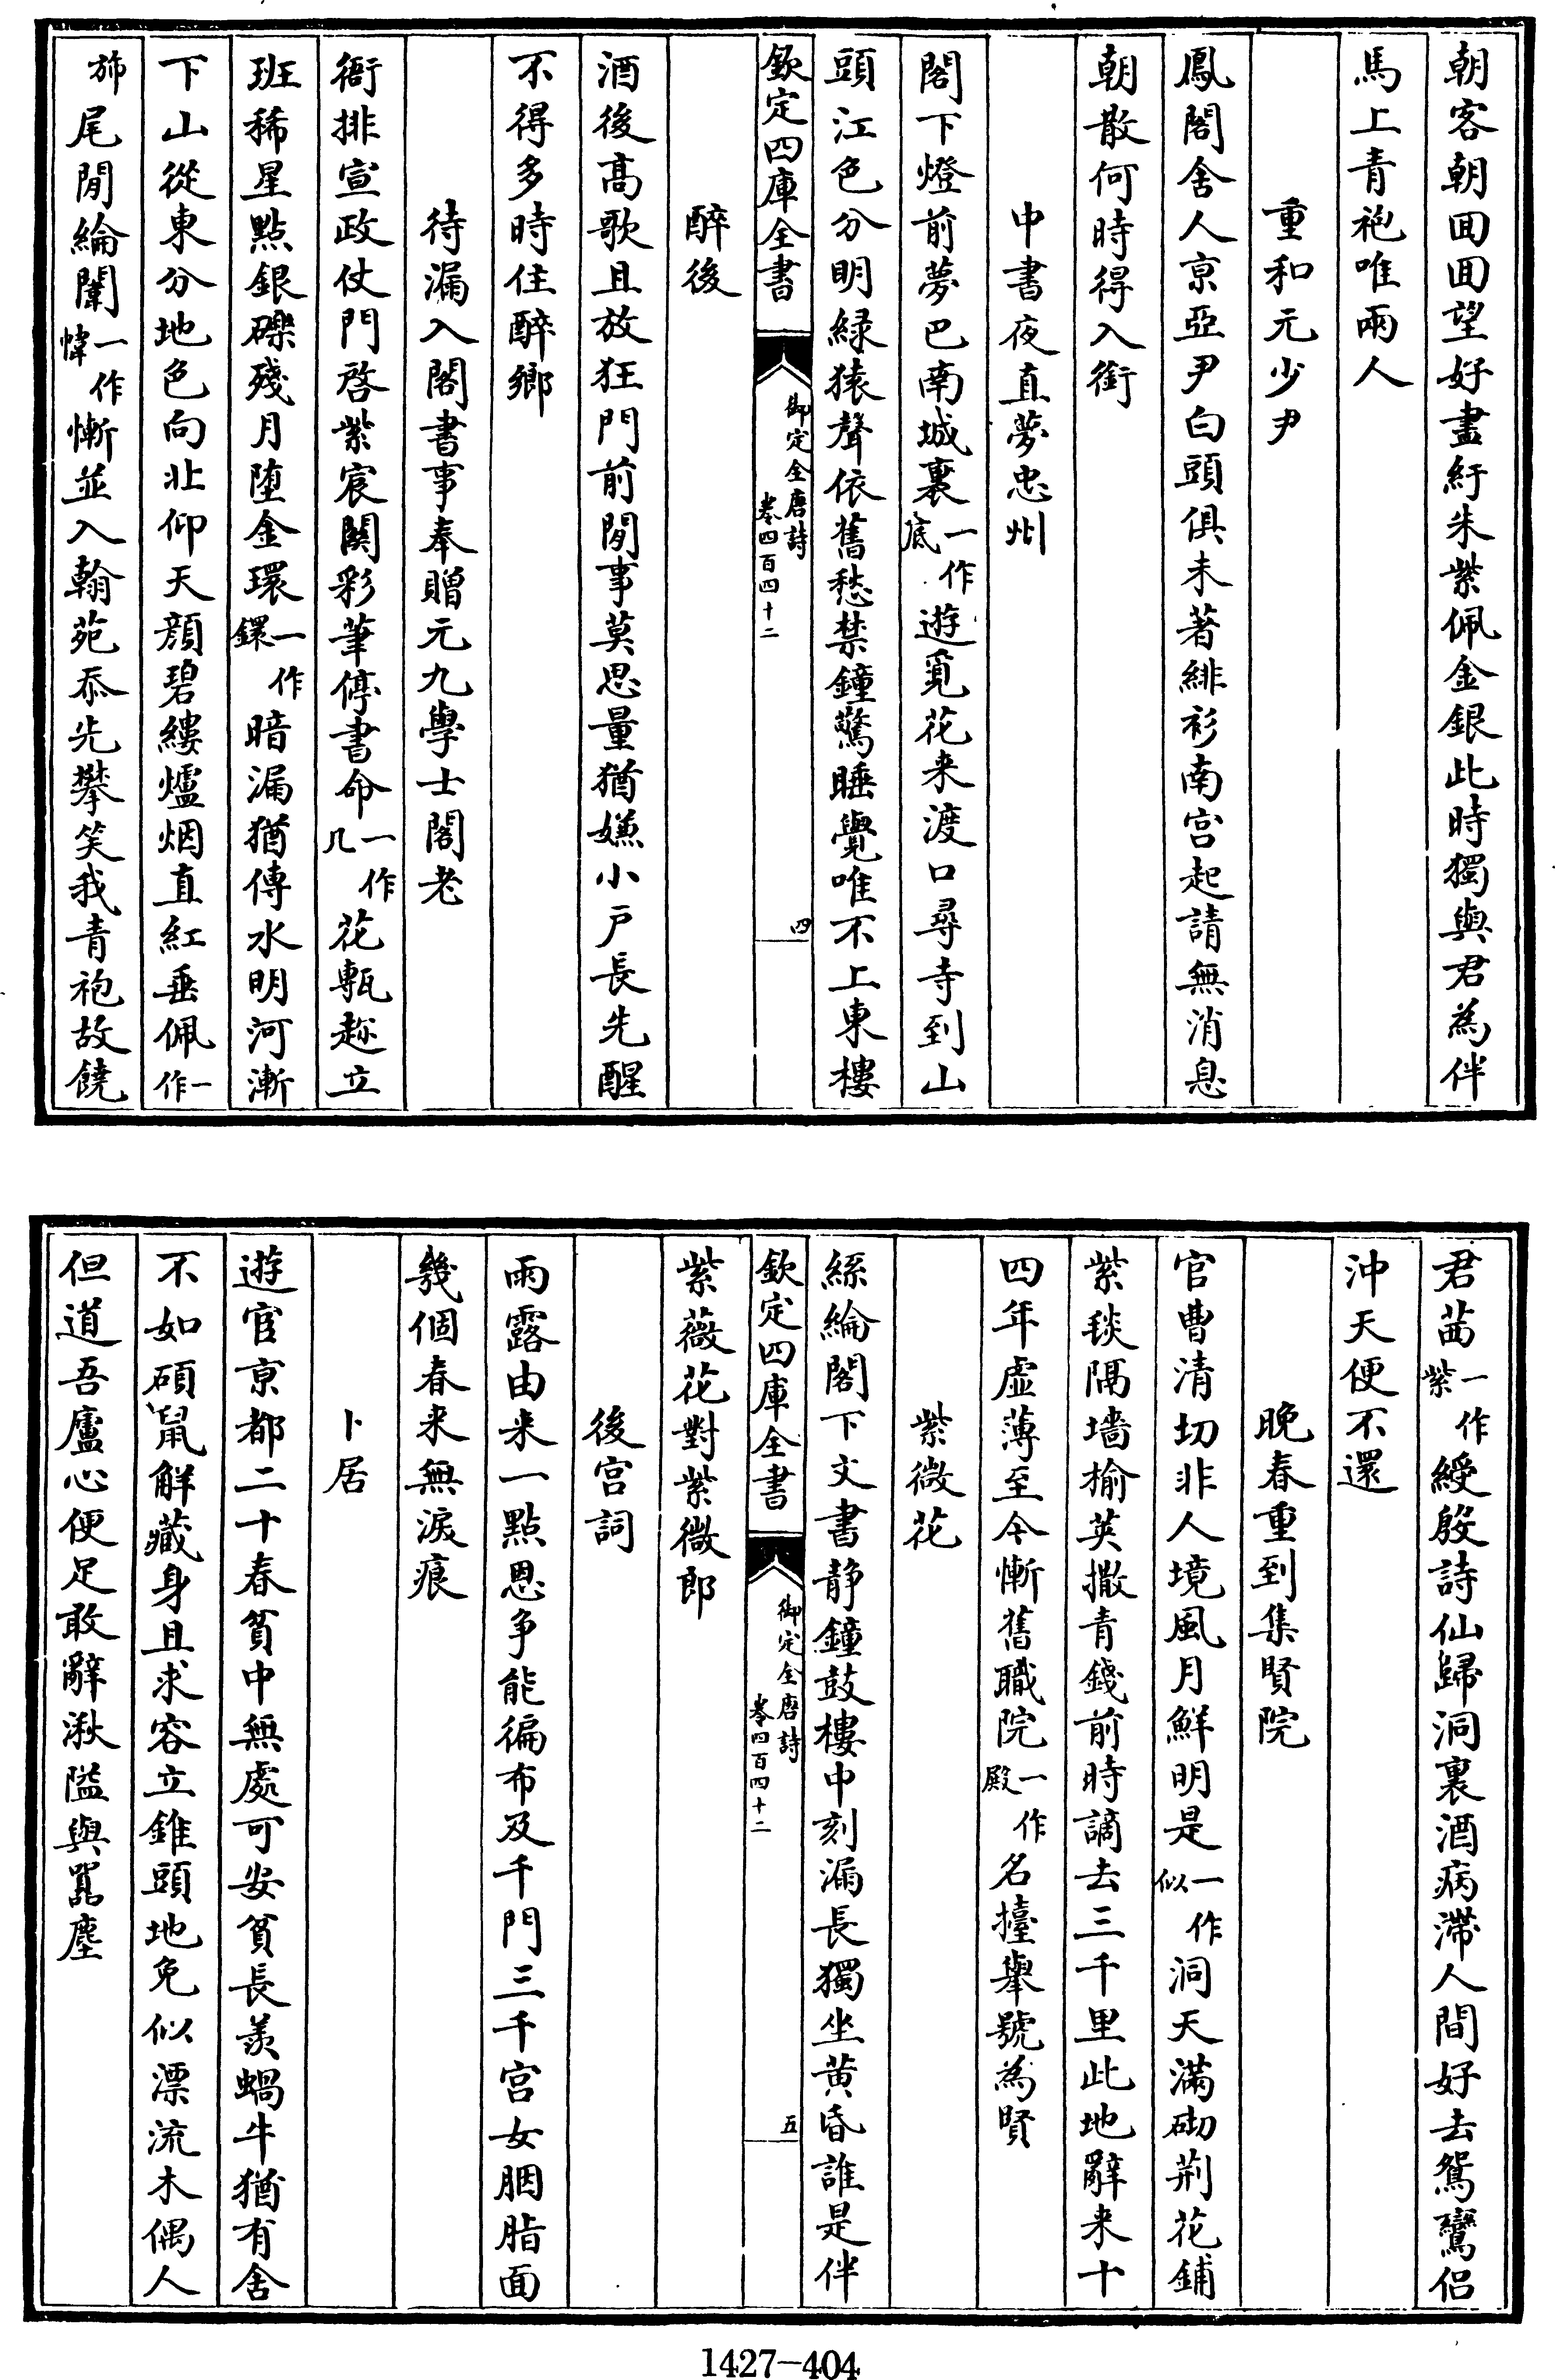 朝客朝回回望好盡紆朱紫佩金銀此時獨與君為伴
馬上青袍唯兩人
重和元少尹
鳳閣舍人京亞尹白頭俱未著緋衫南宫起請無消息
朝散何時得入銜
中書夜直夢忠州
閣下燈前夢巴南城裏一作底遊覓花来渡口尋寺到山
頭江色分明緑猿聲依舊愁禁鐘驚睡覺唯不上東樓
欽定四庫全書
御定全唐詩
卷四百四十二
四
醉後
酒後髙歌且放狂門前閒事莫思量猶嫌小户長先醒
不得多時住醉鄉
待漏入閣書事奉贈元九學士閣老
衙排宣政仗門啓紫宸闗彩筆停書命一作几花甎趂立
班稀星㸃銀礫殘月堕金環一作鐶暗漏猶傳水明河漸
下山從東分地色向北仰天顔碧縷爐烟直紅垂佩一作
斾尾閒綸闈一作幃慚並入翰苑忝先攀笑我青袍故饒
君茜一作紫綬殷詩仙歸洞裏酒病滯人間好去鴛鸞侣
沖天便不還
晚春重到集賢院
官曹清切非人境風月鮮明是一作似洞天滿砌荆花鋪
紫毯隔墻榆莢撒青錢前時謫去三千里此地辭来十
四年虚薄至今慚舊職院一作殿名擡舉號為賢
紫微花
絲綸閣下文書静鐘鼓樓中刻漏長獨坐黄昏誰是伴
欽定四庫全書
御定全唐詩
卷四百四十二
五
紫薇花對紫微郎
後宫詞
雨露由来一㸃恩争能徧布及千門三千宫女胭脂面
幾個春来無淚痕
卜居
遊宦京都二十春貧中無處可安貧長羨蝸牛猶有舍
不如碩鼠解藏身且求容立錐頭地免似漂流木偶人
但道吾廬心便足敢辭湫隘與囂塵
1427-404